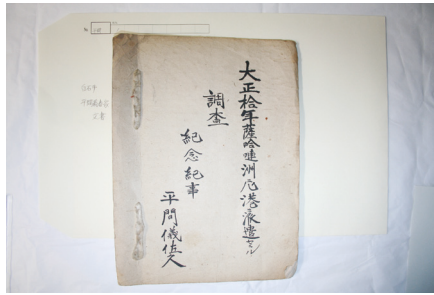 大正拾年薩哈嗹洲尼港派遣セル
調査
紀念紀事
平間儀佐久